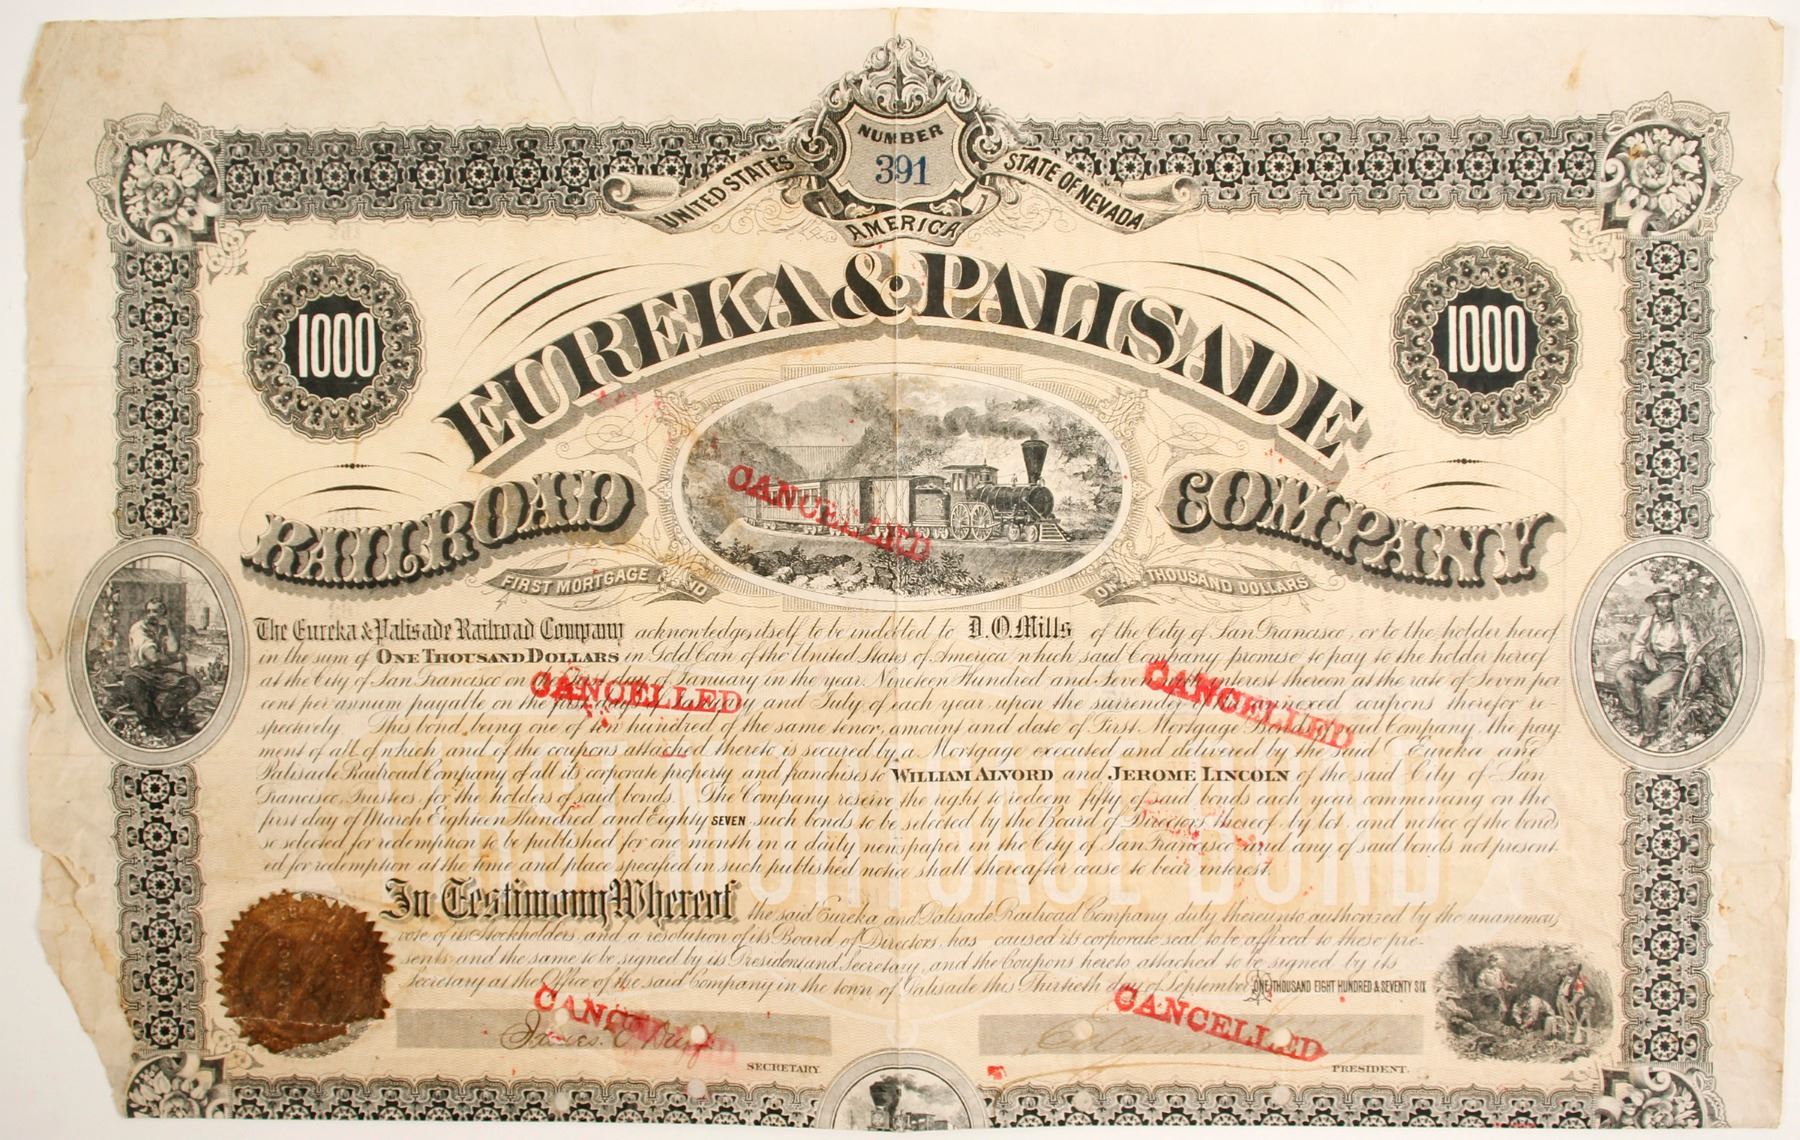 NUMBER
391
UNITED STATES
AMERICA
STATE OF NEVADA
1000
1000
EUREKA & PALISADE
RAILROAD COMPANY
CANCELLED
FIRST MORTGAGE BOND
ONE THOUSAND DOLLARS
The Eureka & Palisade Railroad Company acknowledges itself to be indebted to D. O. Mills of the City of San Francisco, or to the holder hereof
in the sum of ONE THOUSAND DOLLARS in Gold Coin of the United States of America, which said Company promise to pay to the holder hereof
at the City of San Francisco on the first day of January in the year Nineteen Hundred and Seven with interest thereon at the rate of Seven per
cent per annum payable on the first day of January and July of each year, upon the surrender of the annexed coupons therefor re-
spectively This bond being one of ten hundred of the same tenor, amount and date of First Mortgage Bonds of said Company, the pay
ment of all of which and of the coupons attached thereto is secured by a Mortgage executed and delivered by the said Eureka and
Palisade Railroad Company of all its corporate property and franchises to WILLIAM ALVORD and JEROME LINCOLN of the said City of San
Francisco, Trustees, for the holders of said bonds. The Company reserve the right to redeem fifty of said bonds each year commencing on the
first day of March Eighteen Hundred and Eighty SEVEN such bonds to be selected by the Board of Directors thereof, by lot, and notice of the bonds
so selected for redemption to be published for one month in a daily newspaper in the City of San Francisco and any of said bonds not present-
ed for redemption at the time and place specified in such published notice shall thereafter cease to bear interest.
CANCELLED
CANCELLED
FIRST MORTGAGE BOND
In Testimony Whereof the said Eureka and Palisade Railroad Company duly thereunto authorized by the unanimous
vote of its Stockholders, and a resolution of its Board of Directors, has caused its corporate seal to be affixed to these pre-
sents and the same to be signed by its President and Secretary, and the Coupons hereto attached to be signed by its
Secretary at the Office of the said Company in the town of Palisade this Thirtieth day of September ONE THOUSAND EIGHT HUNDRED & SEVENTY SIX
CANCELLED
CANCELLED
SECRETARY
PRESIDENT.